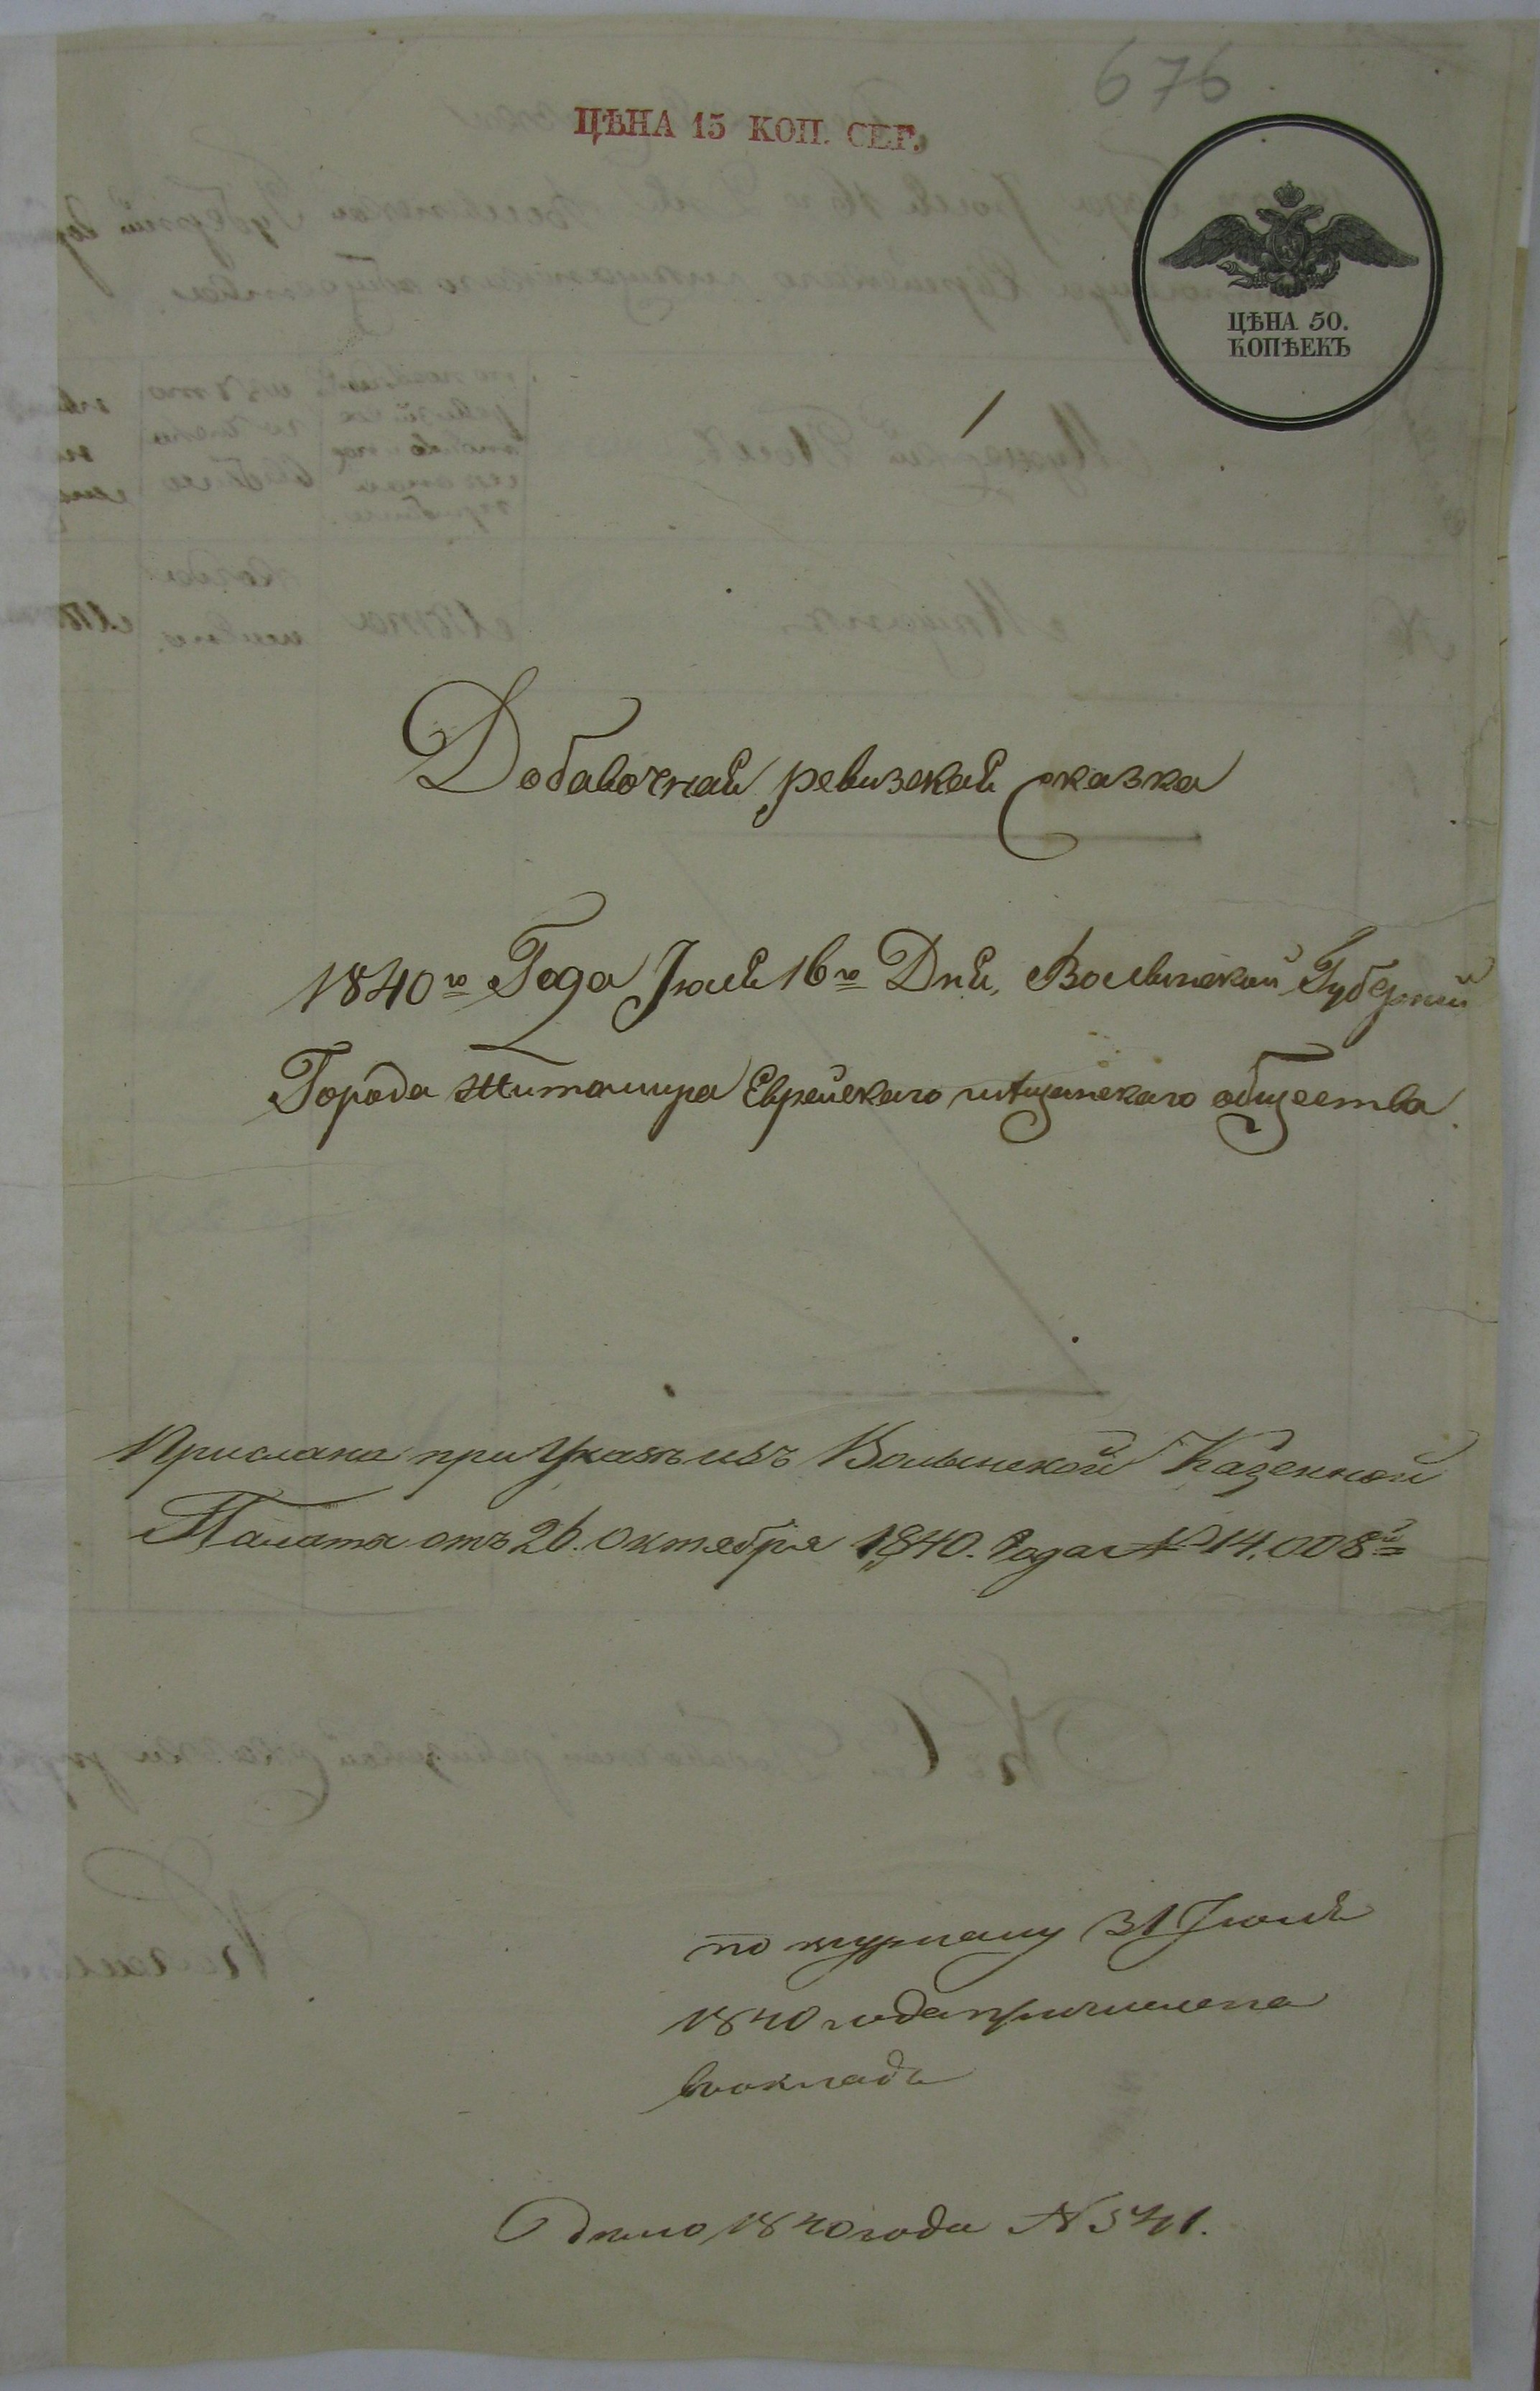 676
ЦѢНА 15 КОП. СЕР.
ЦѢНА 50.
КОПѢЕКЪ
Добавочная ревизская сказка
1840го Года Іюля 16го Дня, Волынской Губерніи
Города Житомира Еврейскаго мѣщанскаго общества.
Прислана при Указѣ изъ Волынской Казенной
Палаты отъ 26. Октября 1840. Года № 14.008й
по журналу 31 Іюля
1840 года причислена
въ окладъ
Дѣло 1840 года № 541.